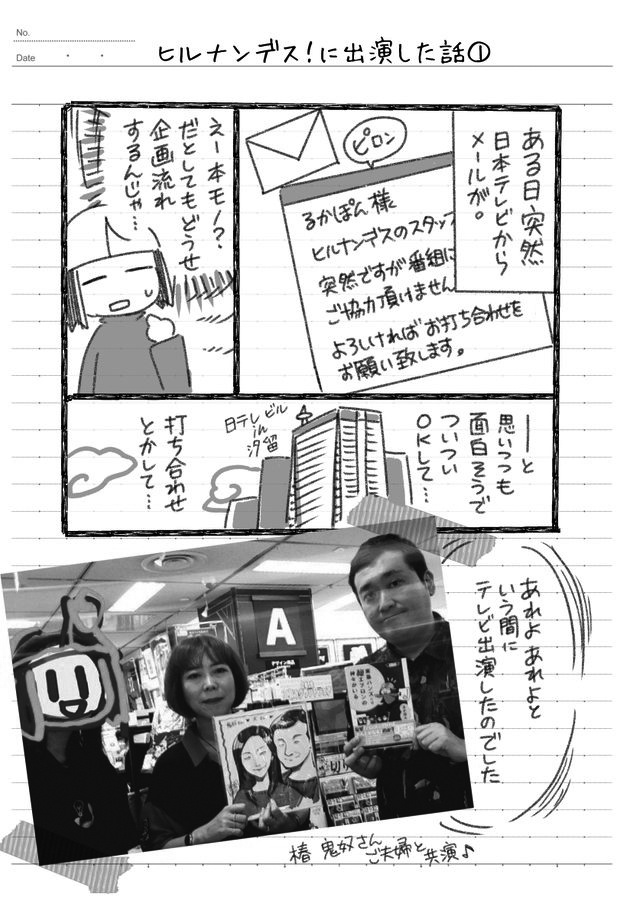 No.
Date
ヒルナンデス!に出演した話①
ある日突然
日本テレビから
メールが。
ピロン
るかぽん様
ヒルナンデスのスタッフ
突然ですが番組に
ご協力頂けません
よろしければお打ち合わせを
お願い致します。
えー本モノ?
だとしてもどうせ
企画流れ
するんじゃ…
——と
思いつつも
面白そうで
ついつい
OKして…
日テレビル
in
汐留
打ち合わせ
とかして…
あれよあれよと
いう間に
テレビ出演したのでした
A
デザイン用品
切り
椿 鬼奴さん
ご夫婦と共演♪